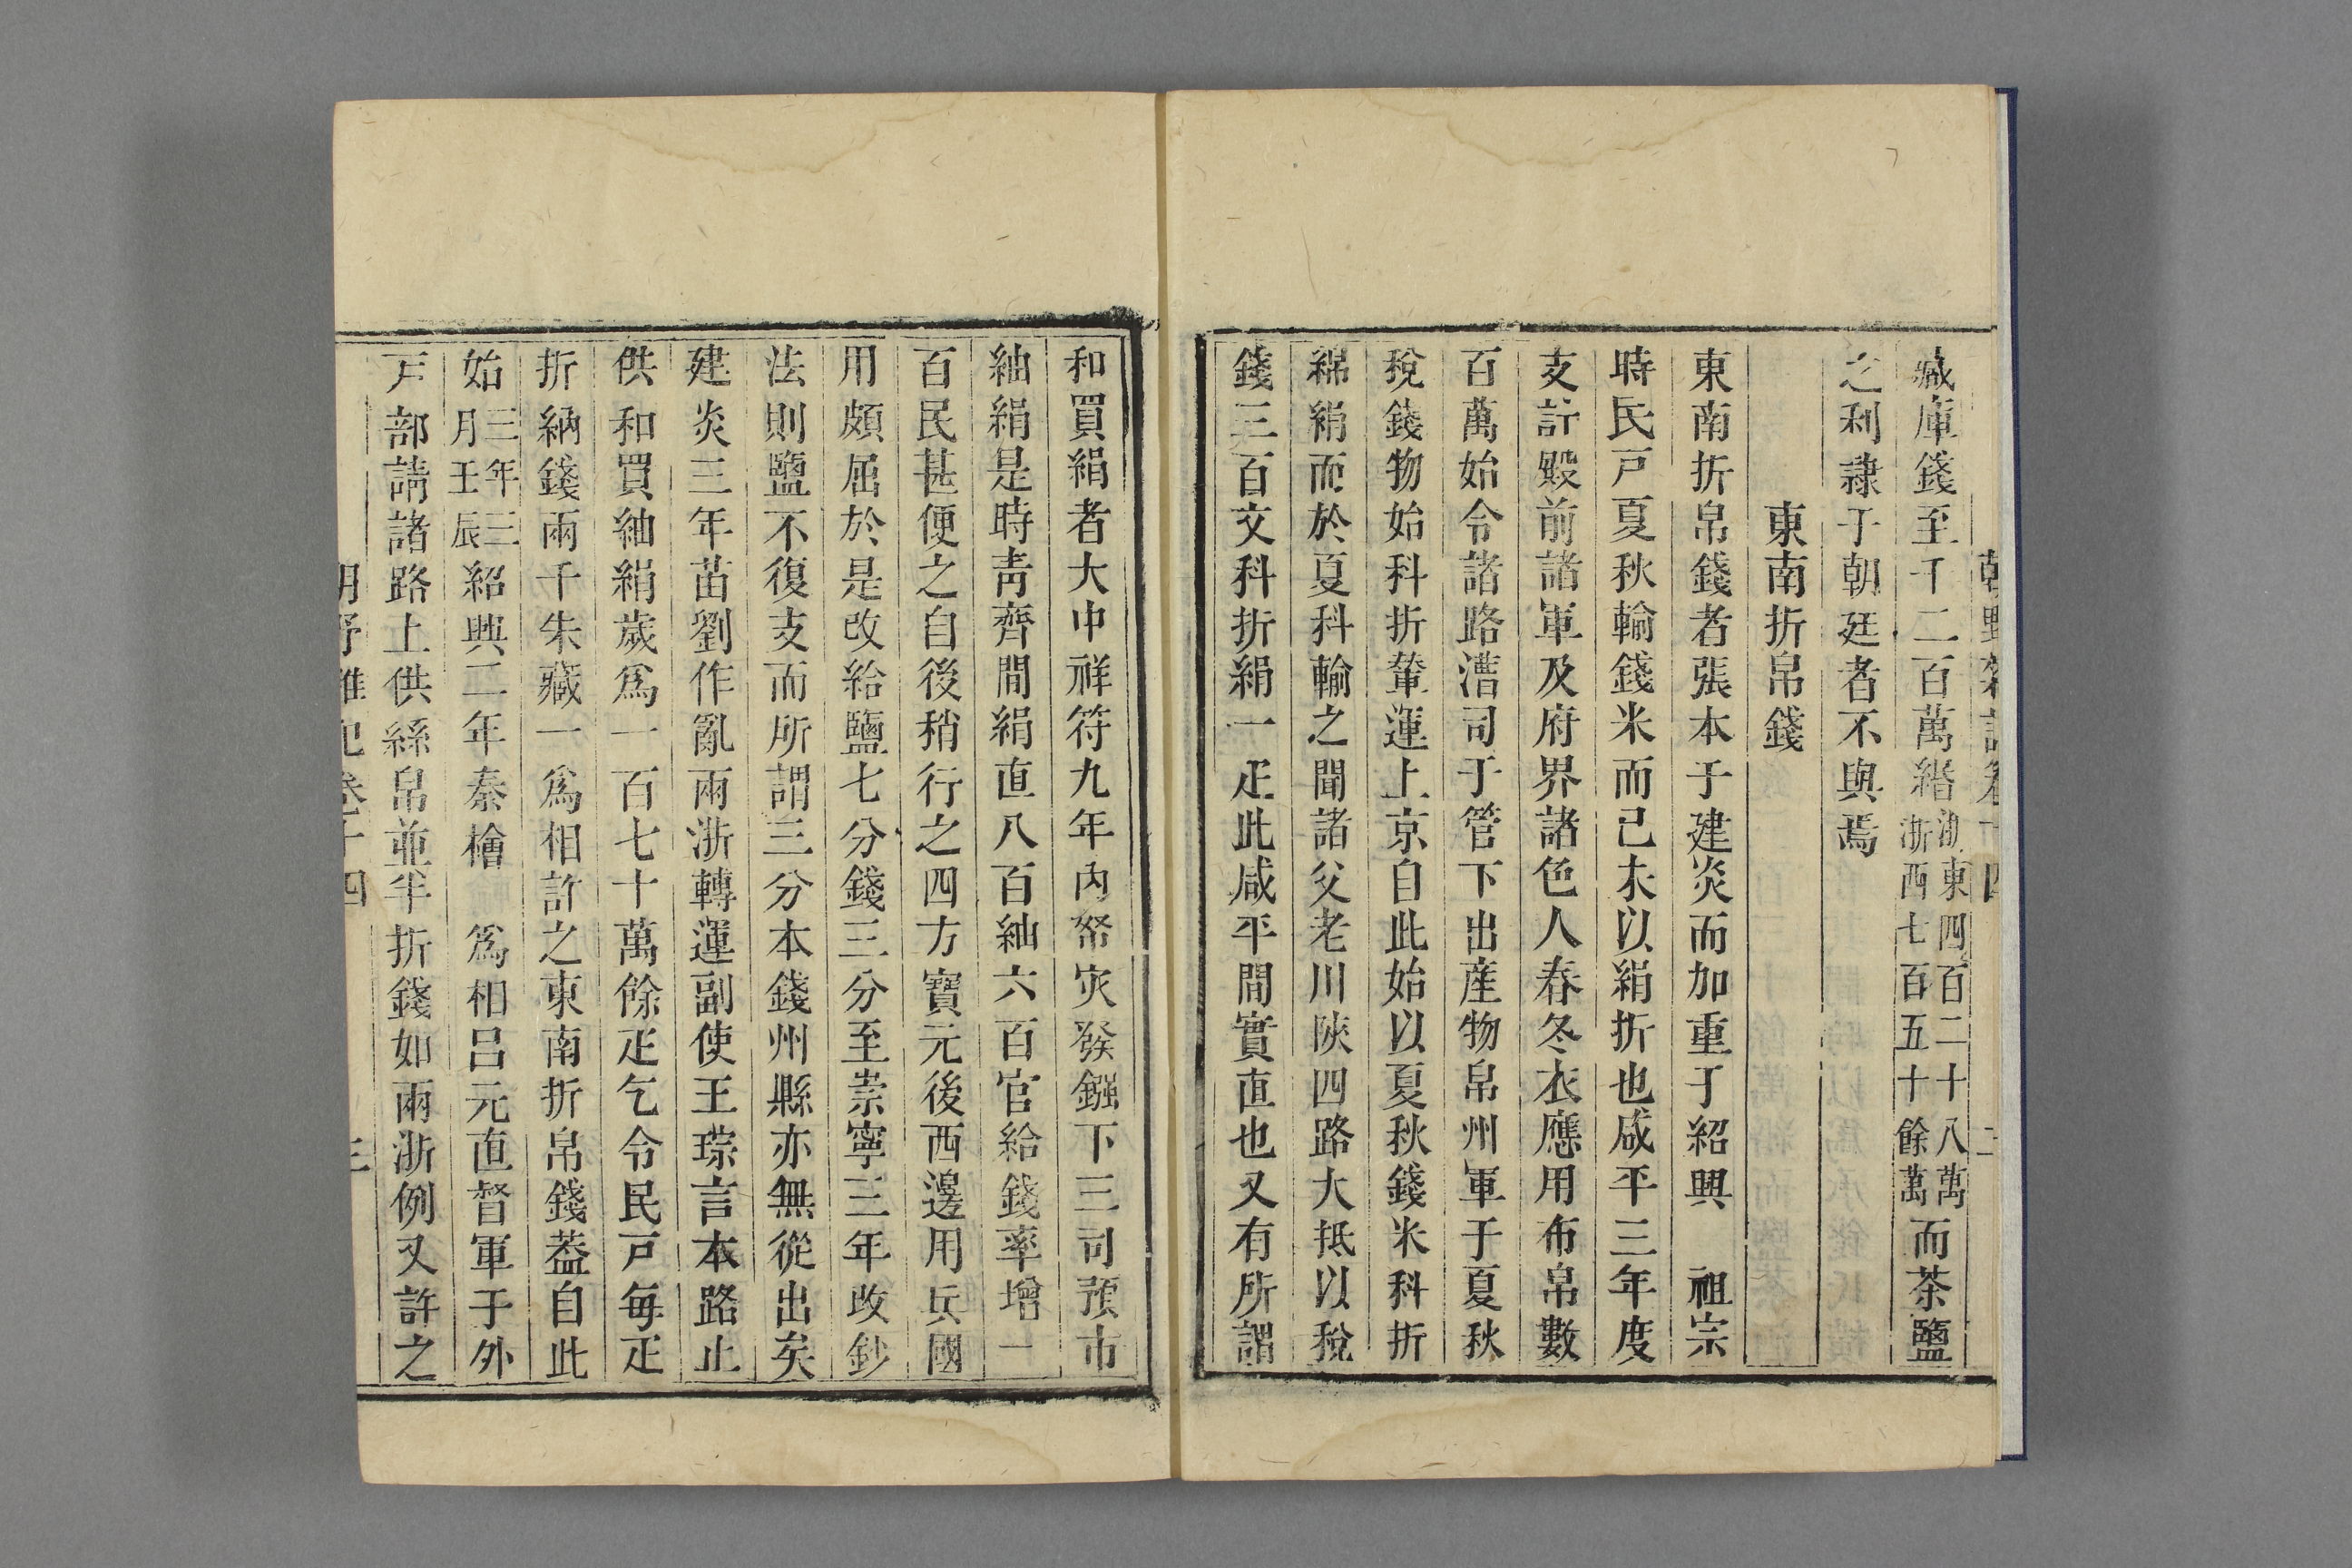 藏庫錢至千二百萬緡浙東四百二十八萬浙西七百五十餘萬而茶鹽
之利隷于朝廷者不與焉
東南折帛錢
東南折帛錢者張本于建炎而加重于紹興　祖宗
時民戸夏秋輸錢米而已未以絹折也咸平三年度
支計殿前諸軍及府界諸色人春冬衣應用布帛數
百萬始令諸路漕司于管下出産物帛州軍于夏秋
稅錢物始科折輦運上京自此始以夏秋錢米科折
綿絹而於夏科輸之聞諸父老川陝四路大抵以稅
錢三百文科折絹一疋此咸平間實直也又有所謂
和買絹者大中祥符九年內帑灾發鏹下三司預市
紬絹是時靑齊間絹直八百紬六百官給錢率增二
百民甚便之自後稍行之四方寶元後西邊用兵國
用頗屈於是改給鹽七分錢三分至崇寧三年改鈔
法則鹽不復支而所謂三分本錢州縣亦無從出矣
建炎三年苗劉作亂兩浙轉運副使王琮言本路止
供和買紬絹歲爲一百七十萬餘疋乞令民戸每疋
折納錢兩千朱藏一爲相許之東南折帛錢葢自此
始三年三月壬辰紹興二年秦檜　爲相呂元直督軍于外
戸部請諸路上供絲帛並半折錢如兩浙例又許之